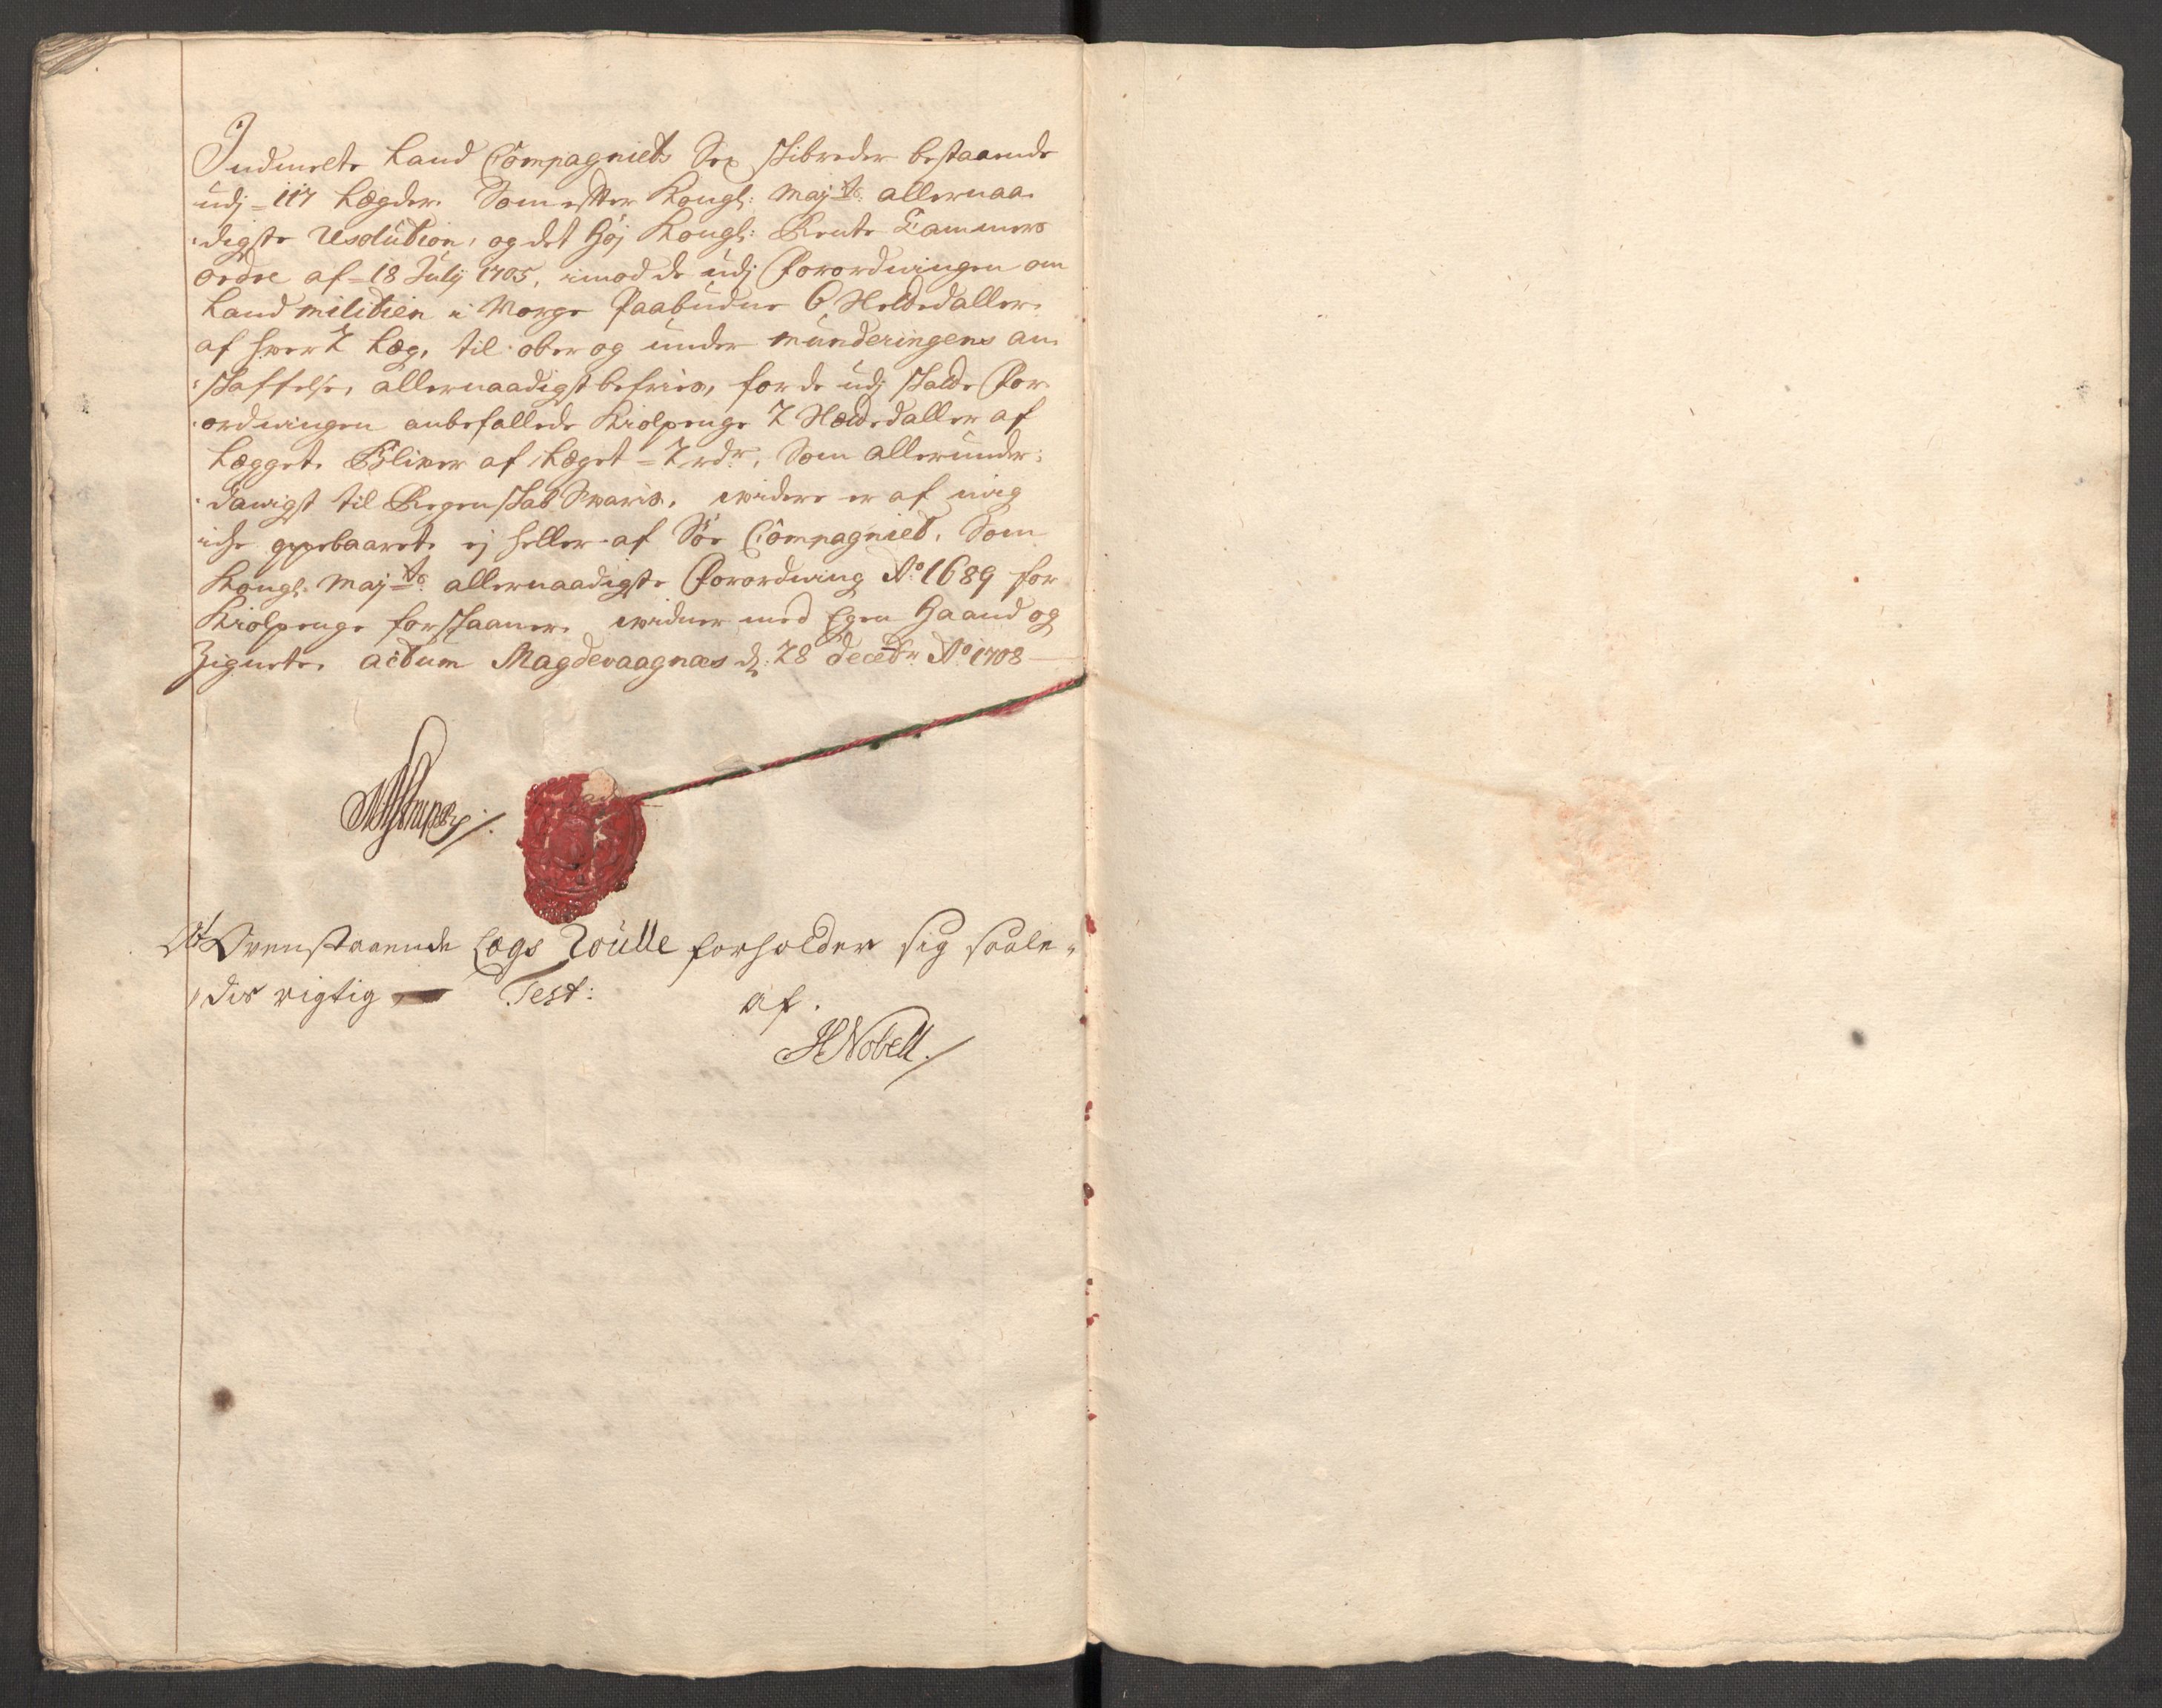 Indmelte Land Compagniets Sex Skibreder bestaaende
udj = 117 Lægder. Som efter Kongl: Maj<sup>ts</sup>: allernaa-
digste Resolution, og det høj Kongl: Rente Cammers
ordre af = 18 July 1705, imod de udj Forordningen om
Land militien i Norge Paabudne 6
af hver 2 Læg, til ober og under munderingens an-
skaffelse, allernaadigst befries, for de udj Forordningen
anbefallede Kiolpenge 2
Lægget. Bliver af Læget = 2 rdr, Som allerunder-
danigst til Regenskab Svaris, widere er af mig
iche oppebaaret, ej heller af Söe Compagniet, Som
Kongl. Maj<sup>ts</sup>: allernaadigste Forordning A:o 1689 for
Kiolpenge forskaaner. widner med Egen Haand og
Zignete. actum Magdevaagnæs d: 28 decebr A:o 1708
At Ovenstaaende Lægs Roulle forholder sig saale-
dis rigtig, Test:
af.
HNobell.